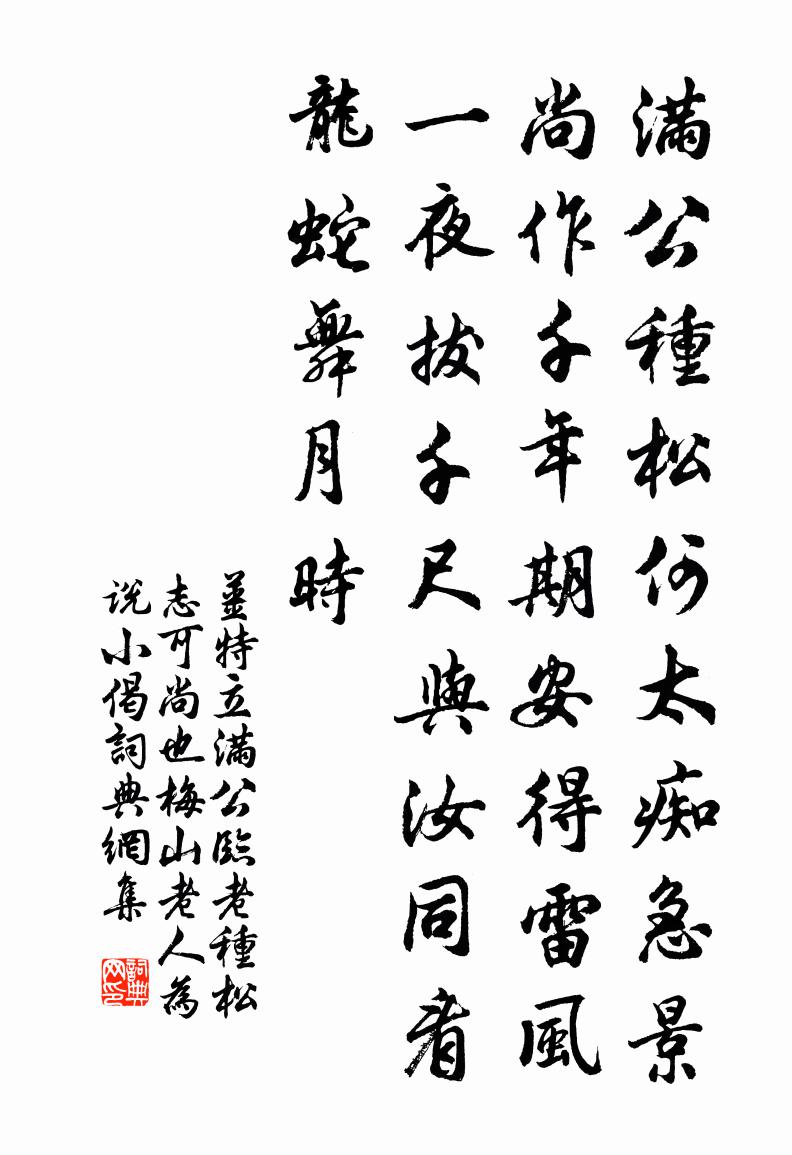 滿公種松何太痴急景
尚作千年期安得雷風
一夜拔千尺與汝同看
龍蛇舞月時
姜特立滿公臨老種松
志可尚也梅山老人為
説小偈詞典網集
詞典
网印